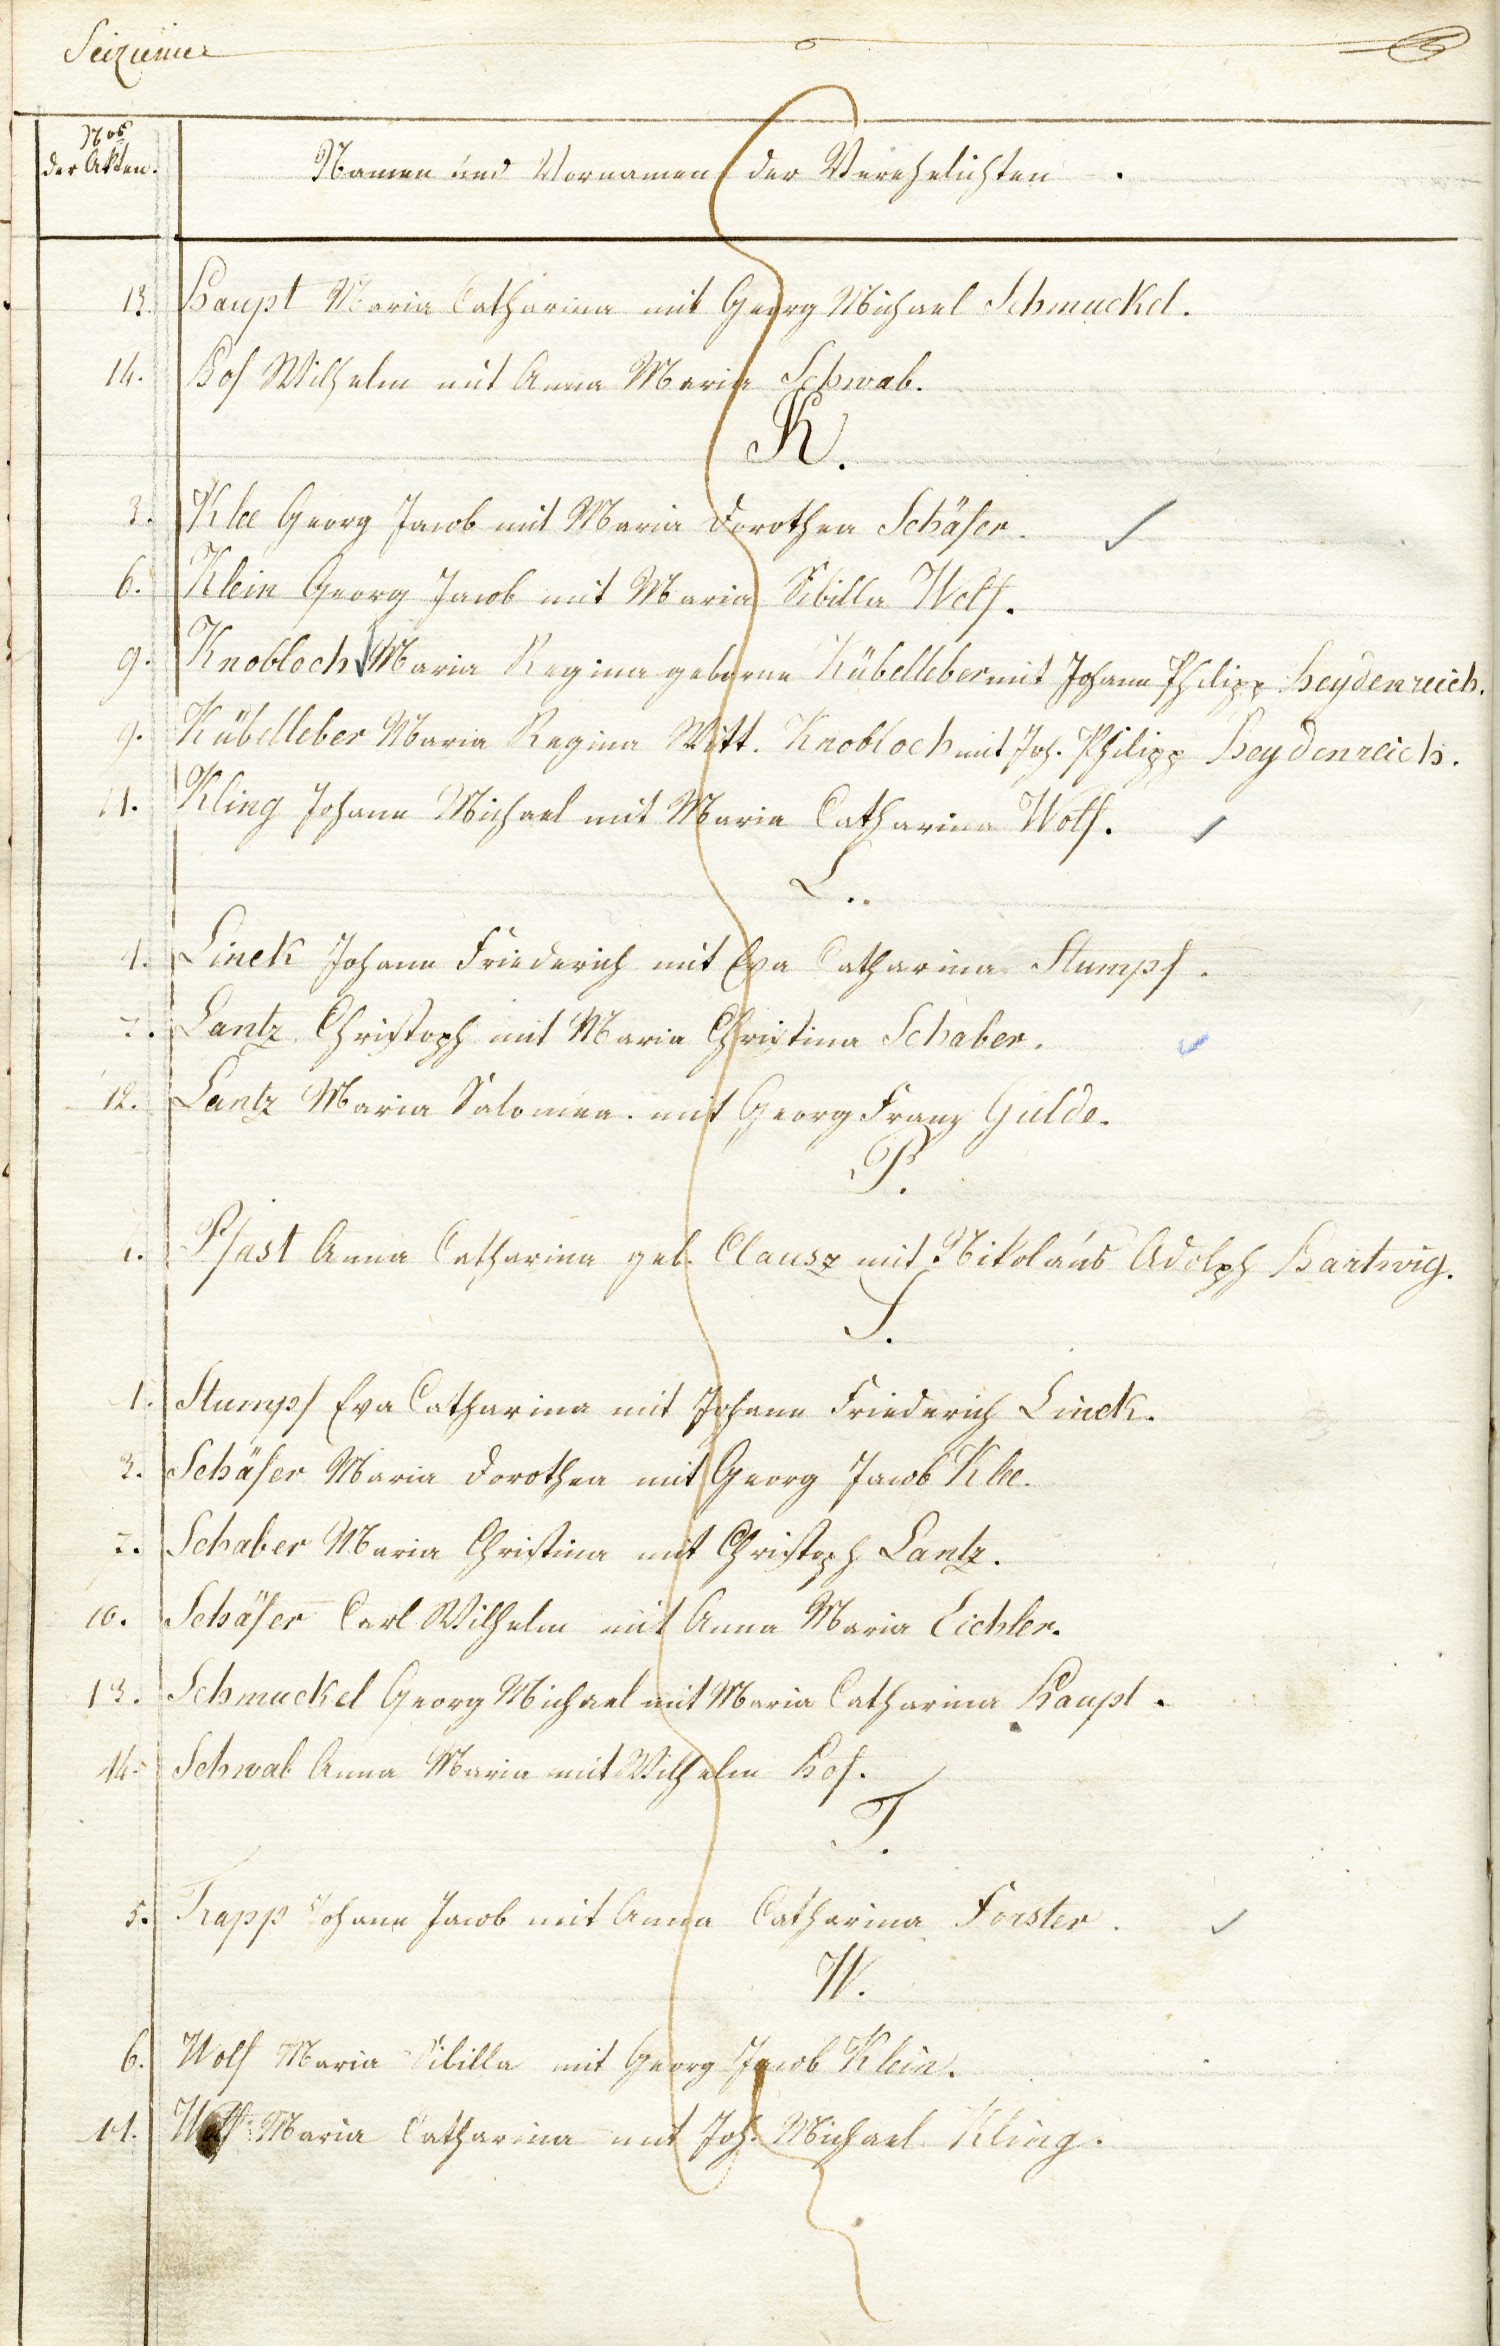 Seizieme
Nos der Akten. Namen und Vornamen der Verehelichten.
13. Haupt Maria Catharina mit Georg Michael Schmuckel.
14. Hof Wilhelm mit Anna Maria Schwab.
K.
3. Klee Georg Jacob mit Maria Dorothea Schäfer.
6. Klein Georg Jacob mit Maria Sibilla Wolf.
9. Knobloch Maria Regina geborne Kübelleber mit Johann Philipp Heydenreich.
9. Kübelleber Maria Regina Witt. Knobloch mit Joh. Philipp Heydenreich.
11. Kling Johann Michael mit Maria Catharina Wolf.
L.
1. Linck Johann Friederich mit Eva Catharina Stumpf.
7. Lantz Christoph mit Maria Christina Schaber.
12. Lantz Maria Salomea mit Georg Franz Gulde.
P.
Pfast Anna Catharina geb. Clausz mit Nikolaus Adolph Hartwig.
S.
1. Stumpf Eva Catharina mit Johann Friederich Linck.
3. Schäfer Maria Dorothea mit Georg Jacob Klee.
7. Schaber Maria Christina mit Christoph Lantz.
10. Schäfer Carl Wilhelm mit Anna Maria Eichler.
13. Schmuckel Georg Michael mit Maria Catharina Haupt.
14. Schwab Anna Maria mit Wilhelm Hof.
T.
5. Trapp Johann Jacob mit Anna Catharina Forster.
W.
6. Wolf Maria Sibilla mit Georg Jacob Klein.
11. Wolf Maria Catharina mit Joh. Michael Kling.